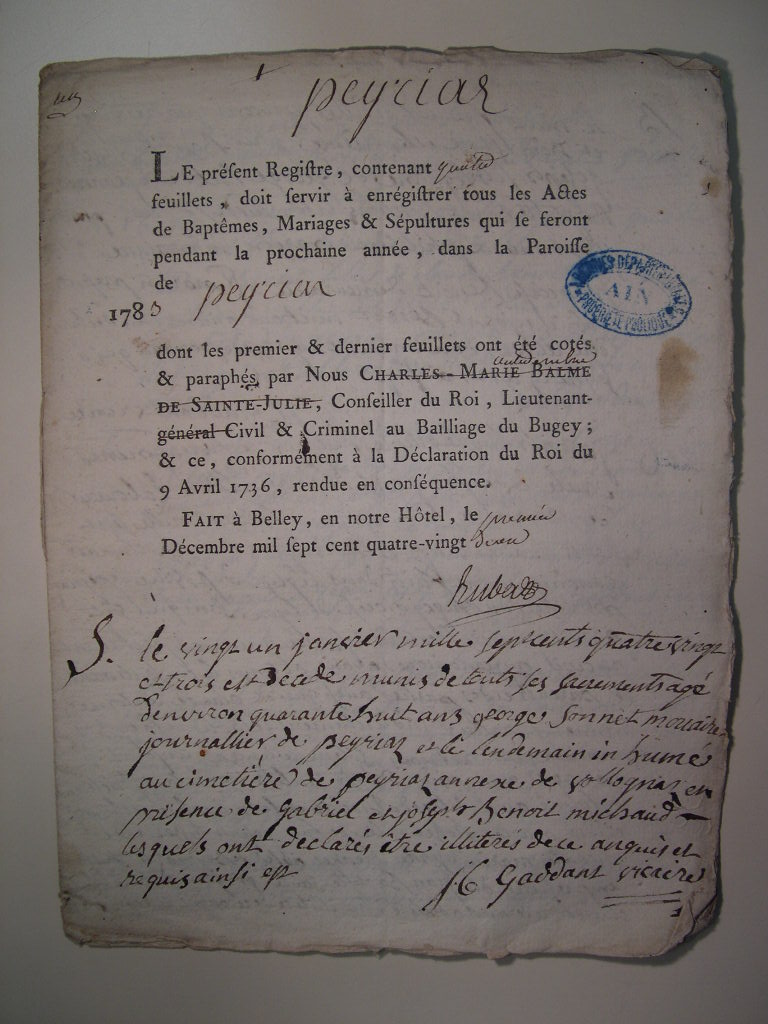 peyriaz
LE préſent Regiſtre, contenant quatre
feuillets, doit ſervir à enrégiſtrer tous les Actes
de Baptêmes, Mariages & Sépultures qui ſe feront
pendant la prochaine année, dans la Paroiſſe
de peyriaz
1783
ARCHIVES DÉPARTEMENTALES
AIN
PROPRIÉTÉ PUBLIQUE
dont les premier & dernier feuillets ont été cotés
& paraphés, par Nous CHARLES-MARIE BALME
DE SAINTE-JULIE, Conſeiller du Roi, Lieutenant-
général Civil & Criminel au Bailliage du Bugey;
& ce, conformément à la Déclaration du Roi du
9 Avril 1736, rendue en conſéquence.
FAIT à Belley, en notre Hôtel, le premier
Décembre mil ſept cent quatre-vingt deux
S. le vingt un janvier mille septcents quatre vingt
et trois est decedé munis de touts ses sacrements agé
d'environ quarante huit ans george sonnet
journallier de peyriaz et le lendemain inhumé
au cimetière de peyriaz annexe de vollognaz en
présence de Gabriel et joseph Benoit michaud
lesquels ont declarés être illiterés de ce anquis et
requis ainsi est
Gaddant vicaire